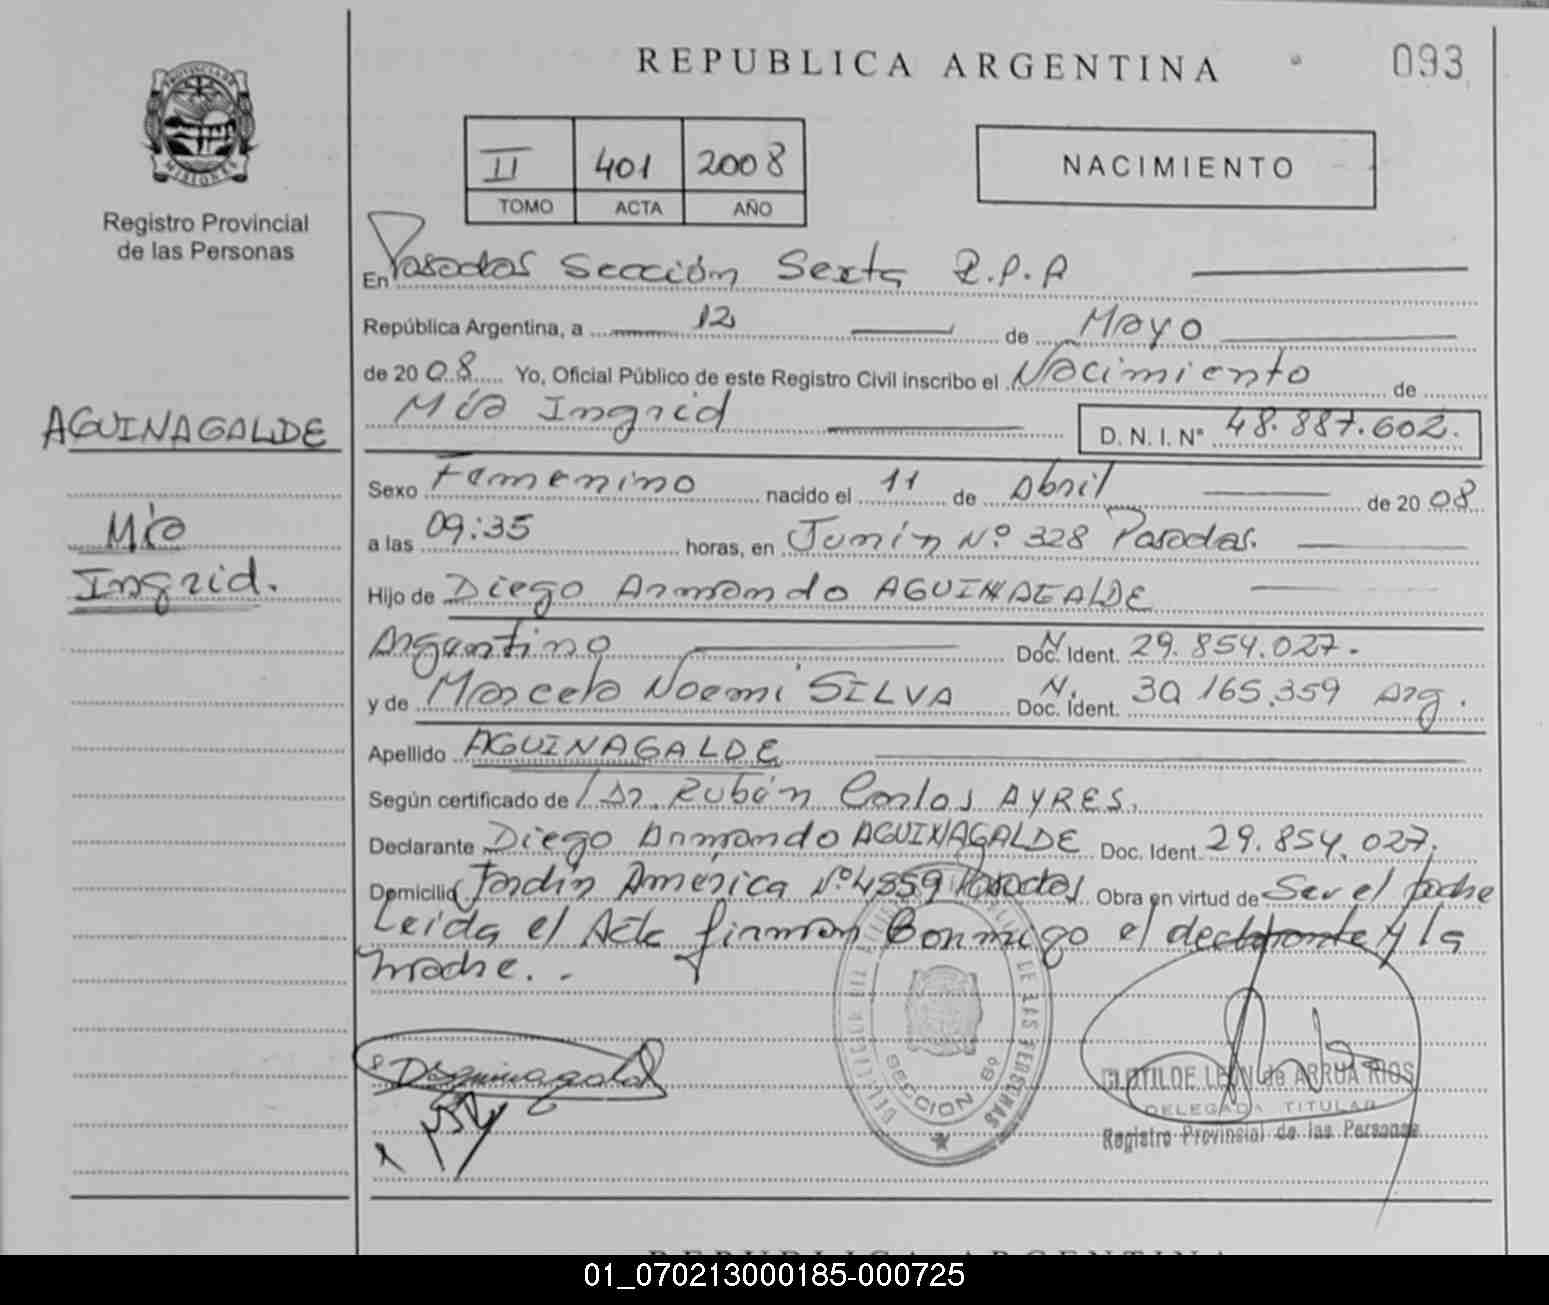 REPUBLICA ARGENTINA
093
PROVINCIA DE
MISIONES
Registro Provincial
de las Personas
II 401 2008
TOMO ACTA AÑO
NACIMIENTO
En Posadas Sección Sexta R.P.P
República Argentina, a 12 de Mayo
de 2008 Yo, Oficial Público de este Registro Civil inscribo el Nacimiento de
Mía Ingrid D. N. I. Nº 48.887.602.
AGUINAGALDE
Mía
Ingrid.
Sexo Femenino nacido el 11 de Abril de 2008
a las 09:35 horas, en Junín Nº 328 Posadas.
Hijo de Diego Armando AGUINAGALDE
Argentino N. Doc. Ident. 29.854.027.
y de Marcela Noemí SILVA N. Doc. Ident. 30.165.359 Arg.
Apellido AGUINAGALDE
Según certificado de Dr. Rubén Carlos AYRES.
Declarante Diego Armando AGUINAGALDE Doc. Ident. 29.854.027.
Domicilio Jardín América Nº 4559 Posadas Obra en virtud de Ser el padre
Leida el Acta firman Conmigo el declarante y la
madre. -
DE LAS PERSONAS
SECCION 6º
CLOTILDE LEON de ARRUA RIOS
DELEGADA TITULAR
Registro Provincial de las Personas
REPUBLICA ARGENTINA
01_070213000185-000725